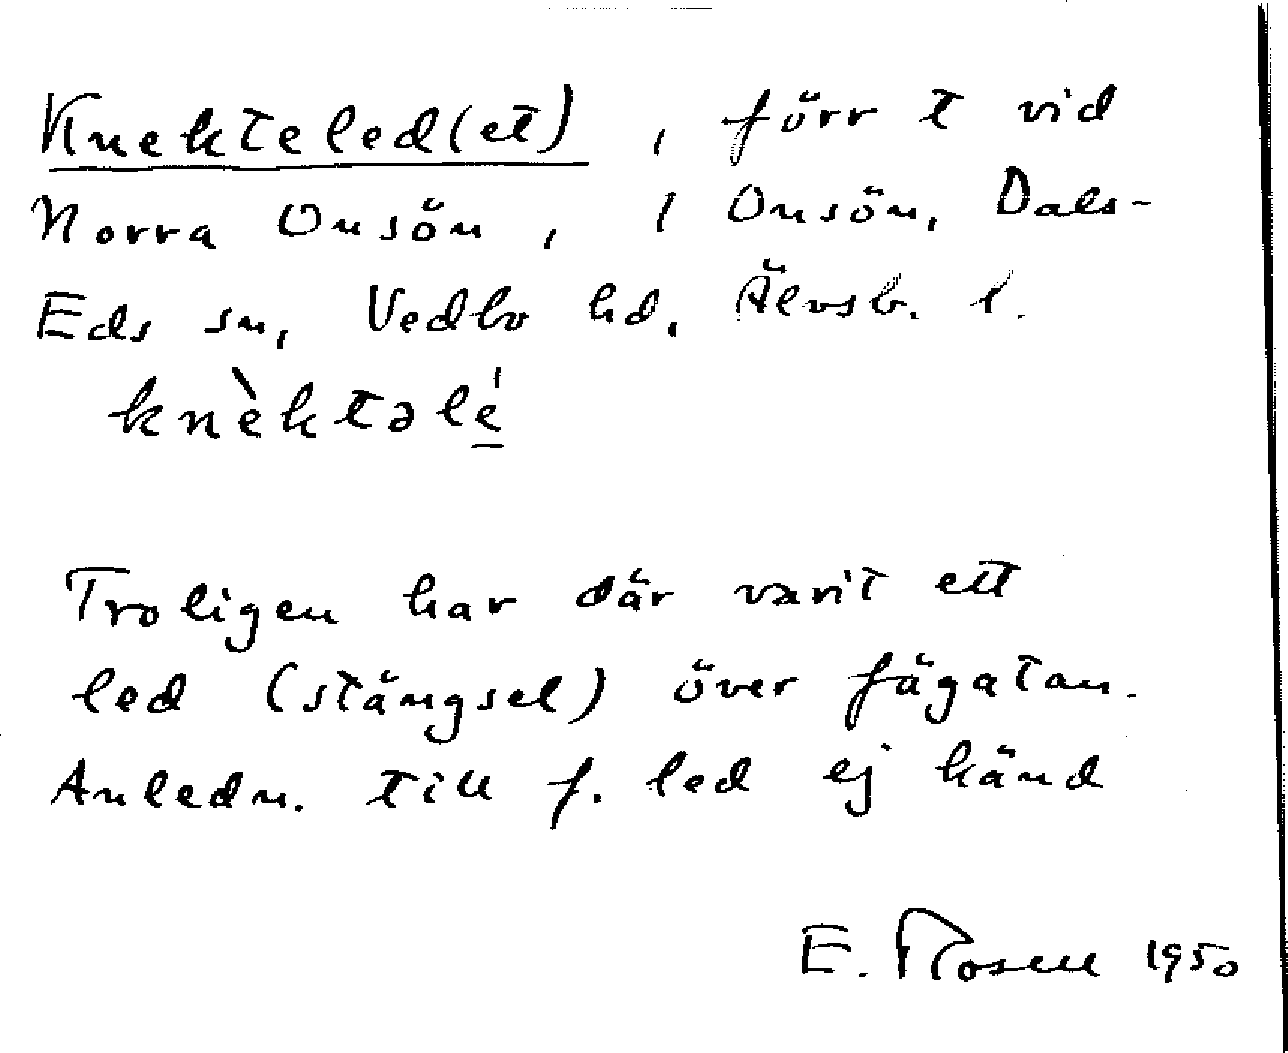 Knekteled(et), förr t vid
Norra Onsön, 1 Onsön, Dals-
Eds sn, Vedbo hd, Älvsb. l.
knèktəlé̱
Troligen har där varit ett
led (stängsel) över fägatan.
Anledn. till f. led ej känd
E. Rosell 1950